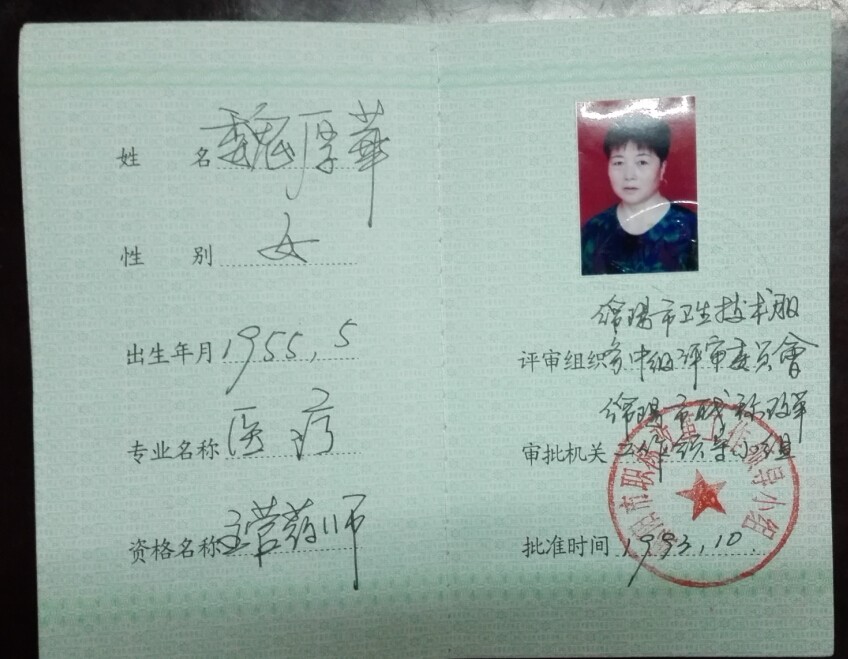 姓 名 魏厚華
性 别 女
出生年月 1955.5
专业名称 医疗
资格名称 主管药师
绵阳市卫生技术职
评审组织 务中级评审委员會
绵阳市职称改革
审批机关 工作领导小组
批准时间 1993.10.
阳市职称改革工作领导小组